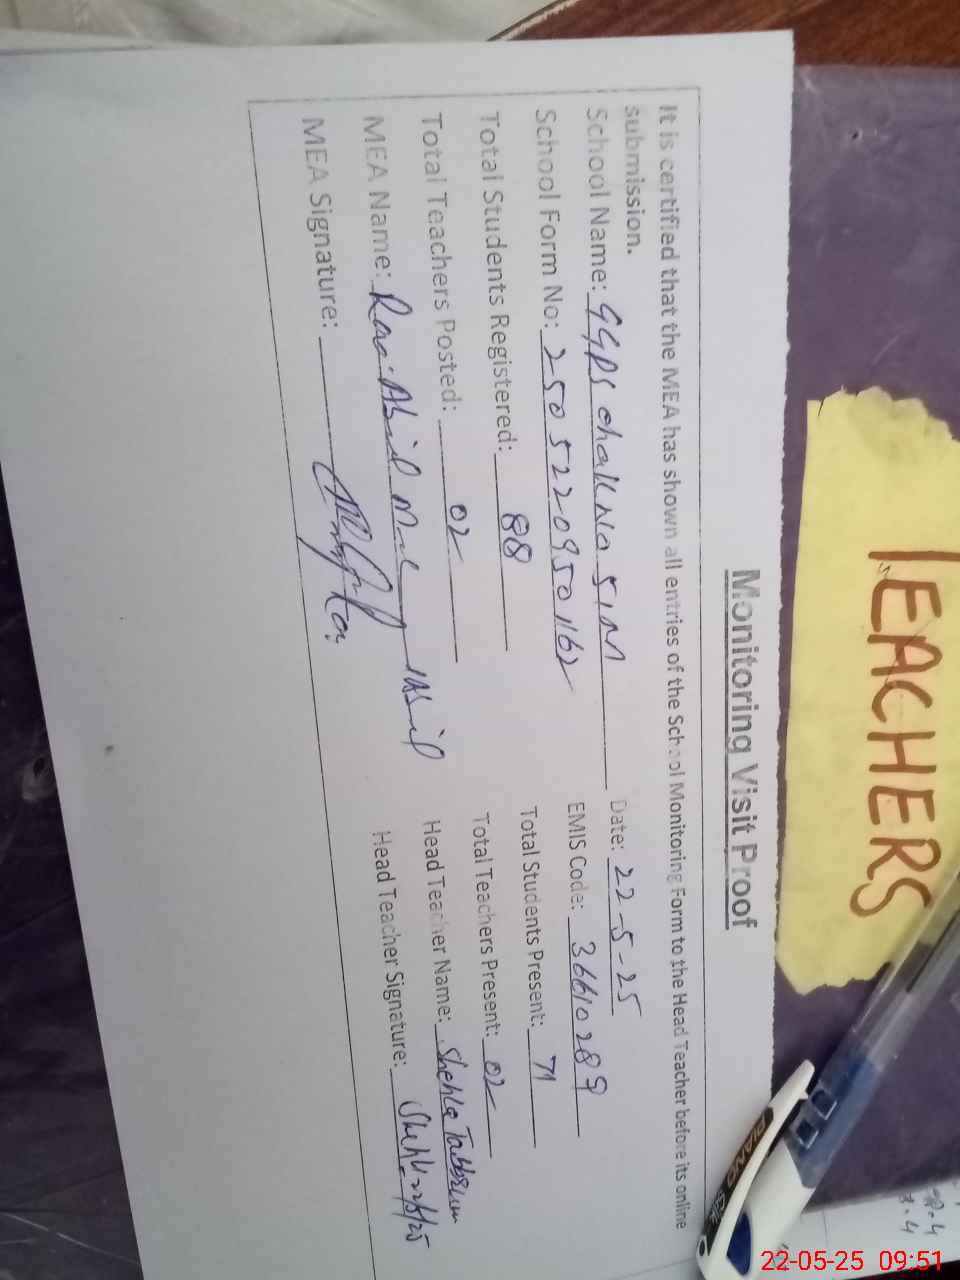 TEACHERS
Monitoring Visit Proof
It is certified that the MEA has shown all entries of the School Monitoring Form to the Head Teacher before its online
submission.
School Name: GGPS chak No 51M Date: 22-5-25
School Form No: 2505220950162 EMIS Code: 36610289
Total Students Registered: 88 Total Students Present: 71
Total Teachers Posted: 02 Total Teachers Present: 02
MEA Name: Rao Abid Head Teacher Name: Shehla Tabbsum
MEA Signature: Head Teacher Signature: 22/5/25
PIANO
22-05-25 09:51